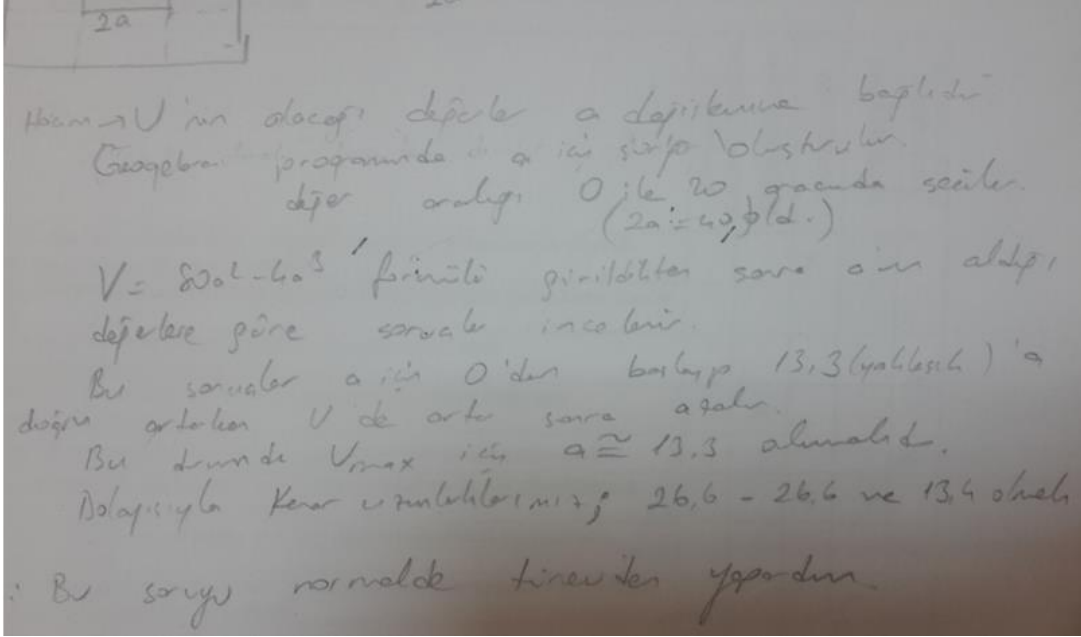 2a
Hacim → V'nin alacağı değerler a değişkenine bağlıdır
Geogebra programında a için sürgü oluşturulur.
değer aralığı 0 ile 20 arasında seçilir.
(2a = 40,
V = 80a² - 4a³ formülü girildikten sonra a'nın aldığı
değerlere göre sonuçlar incelenir.
Bu sonuçlar a için 0'dan başlayıp 13,3 (yaklaşık)'a
doğru artarken V de artar sonra azalır.
Bu durumda Vmax için a ≅ 13,3 alınmalıdır.
Dolayısıyla Kenar uzunluklarımız; 26,6 - 26,6 ve 13,4 olmalı
: Bu soruyu normalde türevden yapardım